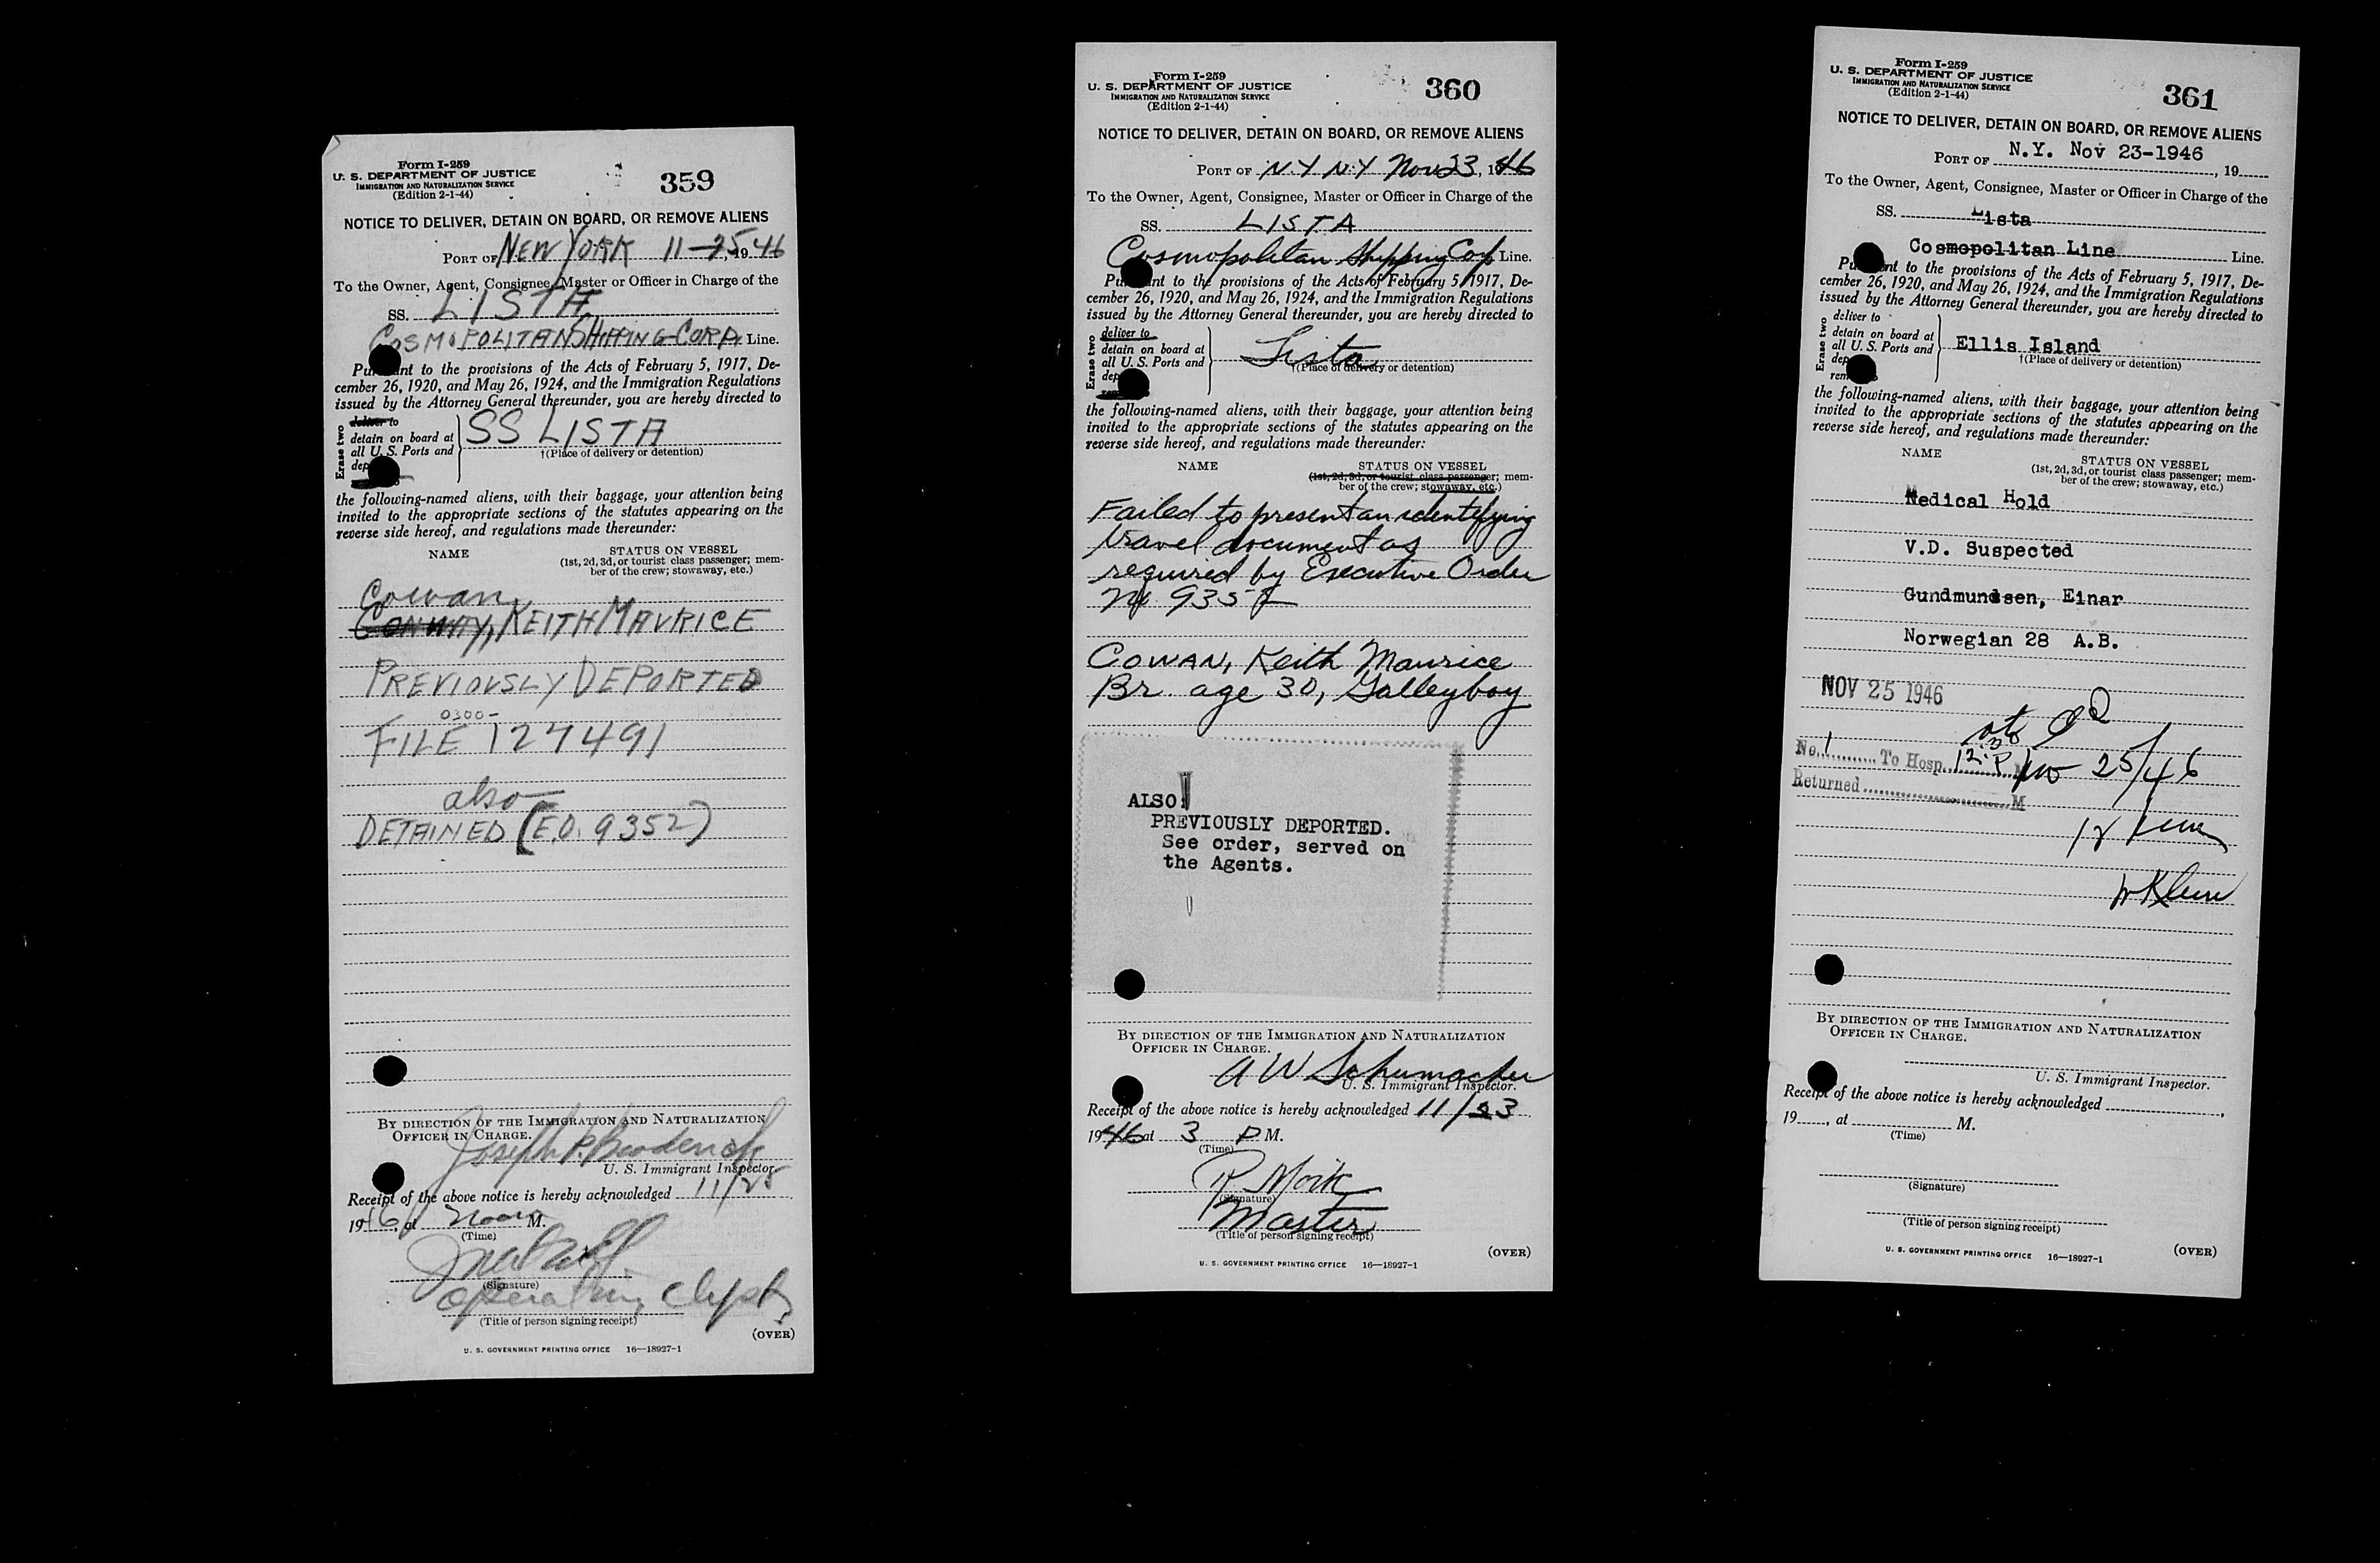 Form I-259
U. S. DEPARTMENT OF JUSTICE
IMMIGRATION AND NATURALIZATION SERVICE
(Edition 2-1-44)
359
NOTICE TO DELIVER, DETAIN ON BOARD, OR REMOVE ALIENS
PORT OF NEW YORK 11-25, 1946
To the Owner, Agent, Consignee, Master or Officer in Charge of the
SS. LISTA
COSMOPOLITAN SHIPPING CORP. Line.
Pursuant to the provisions of the Acts of February 5, 1917, De-
cember 26, 1920, and May 26, 1924, and the Immigration Regulations
issued by the Attorney General thereunder, you are hereby directed to
Erase two
deliver to
detain on board at
all U. S. Ports and
dep
SS LISTA
†(Place of delivery or detention)
the following-named aliens, with their baggage, your attention being
invited to the appropriate sections of the statutes appearing on the
reverse side hereof, and regulations made thereunder:
NAME
STATUS ON VESSEL
(1st, 2d, 3d, or tourist class passenger; mem-
ber of the crew; stowaway, etc.)
Cowan
CONWAY, KEITH MAURICE
PREVIOUSLY DEPORTED
0300-
FILE 127491
also
DETAINED (E.O. 9352)
BY DIRECTION OF THE IMMIGRATION AND NATURALIZATION
OFFICER IN CHARGE.
Joseph P. Broderick
U. S. Immigrant Inspector
Receipt of the above notice is hereby acknowledged 11/25
1946, at Noon M.
(Time)
(Signature)
Operating
(Title of person signing receipt)
(OVER)
U. S. GOVERNMENT PRINTING OFFICE 16—18927-1
Form I-259
U. S. DEPARTMENT OF JUSTICE
IMMIGRATION AND NATURALIZATION SERVICE
(Edition 2-1-44)
360
NOTICE TO DELIVER, DETAIN ON BOARD, OR REMOVE ALIENS
PORT OF N.Y. N.Y Nov 23, 1946
To the Owner, Agent, Consignee, Master or Officer in Charge of the
SS. LISTA
Cosmopolitan Shipping Corp Line.
Pursuant to the provisions of the Acts of February 5, 1917, De-
cember 26, 1920, and May 26, 1924, and the Immigration Regulations
issued by the Attorney General thereunder, you are hereby directed to
Erase two
deliver to
detain on board at
all U. S. Ports and
dep
Lista
†(Place of delivery or detention)
the following-named aliens, with their baggage, your attention being
invited to the appropriate sections of the statutes appearing on the
reverse side hereof, and regulations made thereunder:
NAME
STATUS ON VESSEL
(1st, 2d, 3d, or tourist class passenger; mem-
ber of the crew; stowaway, etc.)
Failed to present an identifying
travel document as
required by Executive Order
No. 9352
COWAN, Keith Maurice
Br. age 30, Galleyboy
ALSO:
PREVIOUSLY DEPORTED.
See order, served on
the Agents.
BY DIRECTION OF THE IMMIGRATION AND NATURALIZATION
OFFICER IN CHARGE.
A W Schumacher
U. S. Immigrant Inspector.
Receipt of the above notice is hereby acknowledged 11/23
1946 at 3 P M.
(Time)
R. Mork
(Signature)
Master
(Title of person signing receipt)
(OVER)
U. S. GOVERNMENT PRINTING OFFICE 16—18927-1
Form I-259
U. S. DEPARTMENT OF JUSTICE
IMMIGRATION AND NATURALIZATION SERVICE
(Edition 2-1-44)
361
NOTICE TO DELIVER, DETAIN ON BOARD, OR REMOVE ALIENS
PORT OF N.Y. Nov 23-1946, 19
To the Owner, Agent, Consignee, Master or Officer in Charge of the
SS. Lista
Cosmopolitan Line Line.
Pursuant to the provisions of the Acts of February 5, 1917, De-
cember 26, 1920, and May 26, 1924, and the Immigration Regulations
issued by the Attorney General thereunder, you are hereby directed to
Erase two
deliver to
detain on board at
all U. S. Ports and
dep
rem
Ellis Island
†(Place of delivery or detention)
the following-named aliens, with their baggage, your attention being
invited to the appropriate sections of the statutes appearing on the
reverse side hereof, and regulations made thereunder:
NAME
STATUS ON VESSEL
(1st, 2d, 3d, or tourist class passenger; mem-
ber of the crew; stowaway, etc.)
Medical Hold
V.D. Suspected
Gundmundsen, Einar
Norwegian 28 A.B.
NOV 25 1946
No. 1 To Hosp. 12:30 P M 25/46
Returned M
W Klein
BY DIRECTION OF THE IMMIGRATION AND NATURALIZATION
OFFICER IN CHARGE.
U. S. Immigrant Inspector.
Receipt of the above notice is hereby acknowledged
19, at M.
(Time)
(Signature)
(Title of person signing receipt)
(OVER)
U. S. GOVERNMENT PRINTING OFFICE 16—18927-1